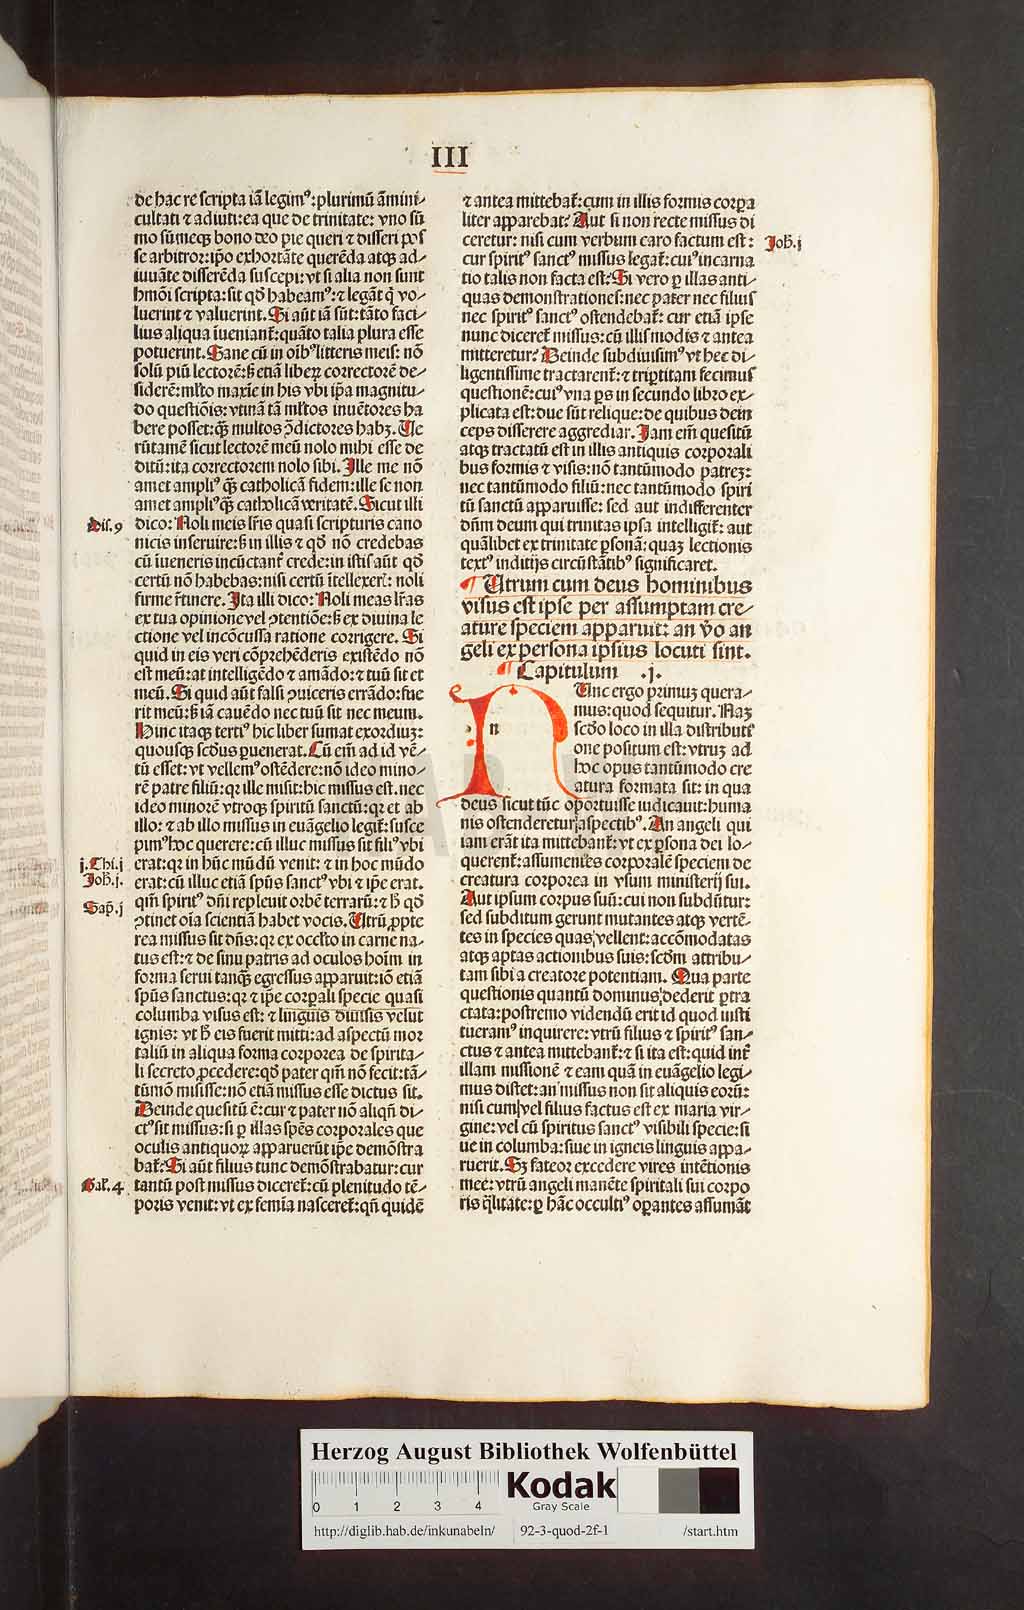 III
de hac re scripta iā legimꝰ: plurimū āmini⸗
cultati ⁊ adiuti: ea que de trinitate: vno sū
mo sūmeqꝫ bono deo pie queri ⁊ disseri pos
se arbitror: ip̄o exhortāte querēda atqꝫ ad⸗
iuuāte disserēda suscepi: vt si alia non sunt
hmōi scripta: sit qđ habeamꝰ: ⁊ legāt q̇ vo⸗
luerint ⁊ valuerint. Si aūt iā sūt: tāto faci⸗
lius aliqua īueniant̄: quāto talia plura esse
potuerint. Sane cū in oībꝰ litteris meis: nō
solū piū lectorē: ꝫ etiā liberꝝ correctorē de⸗
siderē: ml̄to maxīe in his vbi ip̄a magnitu⸗
do questiōis: vtinā tā ml̄tos inuētores ha
bere posset: qꝫ multos ꝯdictores habꝫ. Ue
rūtamē sicut lectorē meū nolo mihi esse de
ditū: ita correctorem nolo sibi. Ille me nō
amet ampliꝰ qꝫ catholicā fidem: ille se non
amet ampliꝰ qꝫ catholicā veritatē. Sicut illi
Dis. 9
dico: Noli meis lr̄is quasi scripturis cano
nicis inseruire: ꝫ in illis ⁊ qđ nō credebas
cū īueneris incūctant̄ crede: in istis aūt qđ
certū nō habebas: nisi certū ītellexer̄: noli
firme r̄tinere. Ita illi dico: Noli meas lr̄as
ex tua opinione vel ꝯtentiōe: ꝫ ex diuina le
ctione vel incōcussa ratione corrigere. Si
quid in eis veri cōprehēderis existēdo nō
est meū: at intelligēdo ⁊ amādo: ⁊ tuū sit et
meū. Si quid aūt falsi ꝯuiceris errādo: fue
rit meū: ꝫ iā cauēdo nec tuū sit nec meum.
Hinc itaqꝫ tertiꝰ hic liber sumat exordiuꝫ:
quousqꝫ scđus ꝑuenerat. Cū em̄ ad id vē⸗
tū esset: vt vellemꝰ ostēdere: nō ideo mino⸗
rē patre filiū: qꝛ ille misit: hic missus est. nec
ideo minorē vtroqꝫ spiritū sanctū: qꝛ et ab
illo: ⁊ ab illo missus in euāgelio legit̄: susce
pimꝰ hoc querere: cū illuc missus sit filiꝰ vbi
j. Thi. j
erat: qꝛ in hūc mūdū venit: ⁊ in hoc mūdo
Joh̄. j.
erat: cū illuc etiā sp̄us sanctꝰ vbi ⁊ ip̄e erat.
Sap̄. j
qm̄ spiritꝰ dn̄i repleuit orbē terrarū: ⁊ h̄ qđ
ꝯtinet oīa scientiā habet vocis. Utrū ꝓpte
rea missus sit dn̄s: qꝛ ex occl̄to in carne na⸗
tus est: ⁊ de sinu patris ad oculos hoīm in
forma serui tanqꝫ egressus apparuit: iō etiā
sp̄us sanctus: qꝛ ⁊ ip̄e corꝑali specie quasi
columba visus est: ⁊ linguis diuisis velut
ignis: vt h̄ eis fuerit mitti: ad aspectū mor
taliū in aliqua forma corporea de spirita⸗
li secreto ꝓcedere: qđ pater qm̄ nō fecit: tā⸗
tūmō misisse: nō etiā missus esse dictus sit.
Deinde quesitū ē: cur ⁊ pater nō aliqn̄ di⸗
ctꝰ sit missus: si ꝑ illas sp̄es corporales que
oculis antiquoꝝ apparuerūt ip̄e demōstra
bat̄: Si aūt filius tunc demōstrabatur: cur
Gal̄. 4
tantū post missus diceret̄: cū plenitudo tē⸗
poris venit: vt ex femīa nasceret̄: qn̄ quidē
⁊ antea mittebat̄: cum in illis formis corꝑa
liter apparebat? Aut si non recte missus di
ceretur: nisi cum verbum caro factum est:
Joh̄. j
cur spiritꝰ sanctꝰ missus legat̄: cuiꝰ incarna
tio talis non facta est? Si vero ꝑ illas anti⸗
quas demonstrationes: nec pater nec filius
nec spiritꝰ sanctꝰ ostendebat̄: cur etiā ipse
nunc diceret̄ missus: cū illis modis ⁊ antea
mitteretur? Deinde subdiuisimꝰ vt hec di⸗
ligentissime tractarent̄: ⁊ tripertitam fecimus
questionē: cuiꝰ vna ꝑs in secundo libro ex⸗
plicata est: due sūt relique: de quibus dein
ceps disserere aggrediar. Jam em̄ quesitū
atqꝫ tractatū est in illis antiquis corporali
bus formis ⁊ visis: nō tantūmodo patreꝫ:
nec tantūmodo filiū: nec tantūmodo spiri
tū sanctū apparuisse: sed aut indifferenter
dn̄m deum qui trinitas ipsa intelligit̄: aut
quālibet ex trinitate ꝑsonā: quaꝫ lectionis
textꝰ inditijs circūstātibꝰ significaret.
¶ Utrum cum deus hominibus
visus est ipse per assumptam cre⸗
ature speciem apparuit: an v̄o an
geli ex persona ipsius locuti sint.
¶ Capitulum .j.
Nunc ergo primuꝫ quera⸗
mus: quod sequitur. Naꝫ
scđo loco in illa distributi
one positum est: vtruꝫ ad
hoc opus tantūmodo cre
atura formata sit: in qua
deus sicut tūc oportuisse iudicauit: huma
nis ostenderetur aspectibꝰ. An angeli qui
iam erāt ita mittebant̄: vt ex ꝑsona dei lo⸗
querent̄: assumentes corporalē speciem de
creatura corporea in vsum ministerij sui.
Aut ipsum corpus suū: cui non subdūtur:
sed subditum gerunt mutantes atqꝫ vertē⸗
tes in species quas vellent: accōmodatas
atqꝫ aptas actionibus suis: scđm attribu⸗
tam sibi a creatore potentiam. Qua parte
questionis quantū dominus dederit ꝑtra
ctata: postremo videndū erit id quod insti
tueramꝰ inquirere: vtrū filius ⁊ spiritꝰ san⸗
ctus ⁊ antea mittebant̄: ⁊ si ita est: quid int̄
illam missionē ⁊ eam quā in euāgelio legi⸗
mus distet: an missus non sit aliquis eorū:
nisi cum vel filius factus est ex maria vir⸗
gine: vel cū spiritus sanctꝰ visibili specie: si
ue in columba: siue in igneis linguis appa⸗
ruerit. Sꝫ fateor excedere vires intētionis
mee: vtrū angeli manēte spiritali sui corpo
ris q̄litate: ꝑ hāc occultiꝰ oꝑantes assumāt
Herzog August Bibliothek Wolfenbüttel
0 1 2 3 4
Kodak
Gray Scale
http://diglib.hab.de/inkunabeln/ 92-3-quod-2f-1 /start.htm